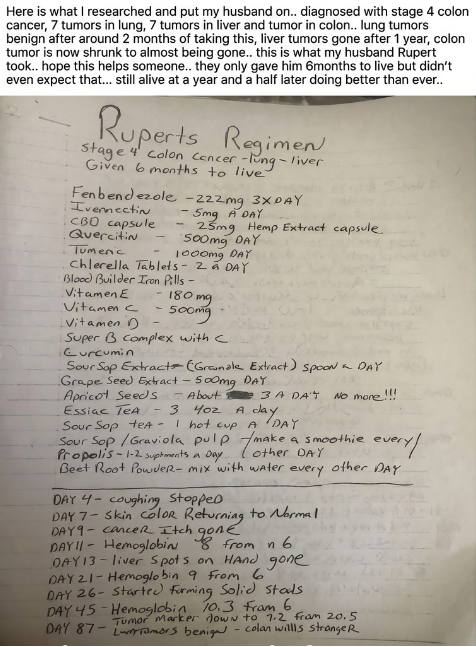 Here is what I researched and put my husband on.. diagnosed with stage 4 colon
cancer, 7 tumors in lung, 7 tumors in liver and tumor in colon.. lung tumors
benign after around 2 months of taking this, liver tumors gone after 1 year, colon
tumor is now shrunk to almost being gone.. this is what my husband Rupert
took.. hope this helps someone.. they only gave him 6months to live but didn't
even expect that... still alive at a year and a half later doing better than ever..
Ruperts Regimen
Stage 4 colon cancer -lung - liver
Given 6 months to live
Fenbendezole -222mg 3XDAY
Ivermectin - 5mg A DAY
CBD capsule - 25mg Hemp Extract capsule
Quercitin - 500mg DAY
Tumeric - 1000mg DAY
Chlerella Tablets - 2 a DAY
Blood Builder Iron Pills -
Vitamen E - 180 mg
Vitamen C - 500mg
Vitamen D -
Super B complex with C
Curcumin
Sour Sop Extract - (Extract) spoon a DAY
Grape Seed Extract - 500mg DAY
Apricot Seeds - About 3 A DAY No more!!!
Essiac Tea - 3 4oz A day
Sour Sop tea - 1 hot cup A DAY
Sour Sop / Graviola pulp - make a smoothie every / other DAY
Propolis - 1-2 a Day
Beet Root Powder - mix with water every other DAY
DAY 4 - coughing Stopped
DAY 7 - Skin color Returning to Normal
DAY 9 - cancer Itch gone
DAY 11 - Hemoglobin 8 from 6
DAY 13 - liver Spots on HAnd gone
DAY 21 - Hemoglobin 9 from 6
DAY 26 - Started forming Solid stools
DAY 45 - Hemoglobin 10.3 from 6
Tumor marker down to 7.2 from 20.5
DAY 87 - Lung Tumors benign - colan stronger